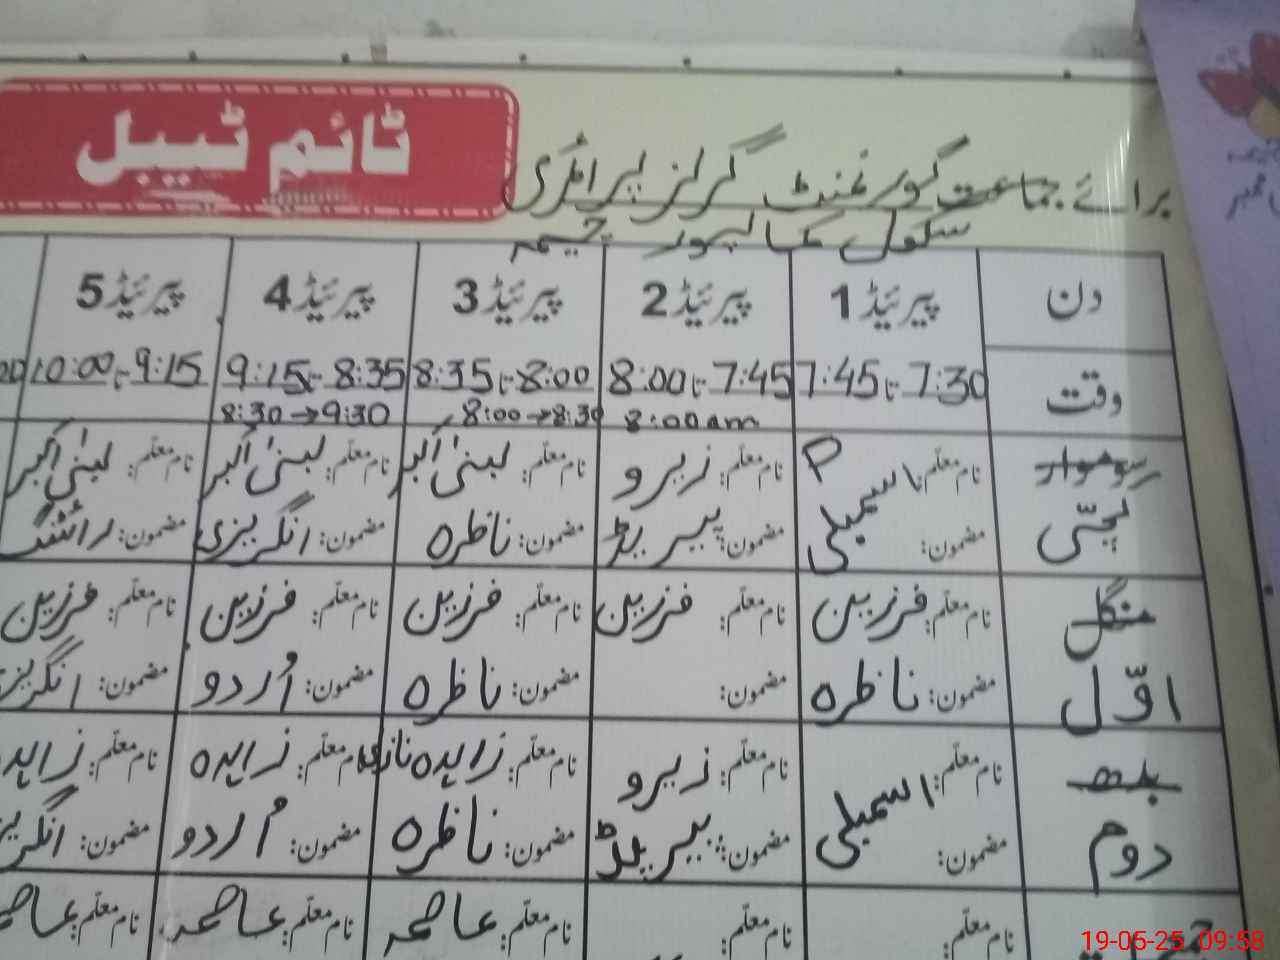 ٹائم ٹیبل
برائے جماعت گورنمنٹ گرلز پرائمری
سکول کمالپور چیمہ
دن پیریئڈ 1 پیریئڈ 2 پیریئڈ 3 پیریئڈ 4 پیریئڈ 5
وقت 7:30 تا 7:45 7:45 تا 8:00 8:00 تا 8:35 8:35 تا 9:15 9:15 تا 10:00
8:00am 8:00→8:30 8:30→9:30
سوموار نام معلم: اسمبلی نام معلم: زیرو نام معلم: لبنیٰ اکبر نام معلم: لبنیٰ اکبر نام معلم: لبنیٰ اکبر
کچی مضمون: مضمون: پیریڈ مضمون: ناظرہ مضمون: انگریزی مضمون: رائٹنگ
منگل نام معلم: فرزین نام معلم: فرزین نام معلم: فرزین نام معلم: فرزین نام معلم: فرزین
اوّل مضمون: ناظرہ مضمون: مضمون: ناظرہ مضمون: اُردو مضمون:
بدھ نام معلم: اسمبلی نام معلم: زیرو نام معلم: زاہدہ نازی نام معلم: زاہدہ نام معلم:
دوم مضمون: مضمون: پیریڈ مضمون: ناظرہ مضمون: اُردو مضمون:
نام معلم: نام معلم: نام معلم: عاصمہ نام معلم: عاصمہ نام معلم:
19-05-25 09:58